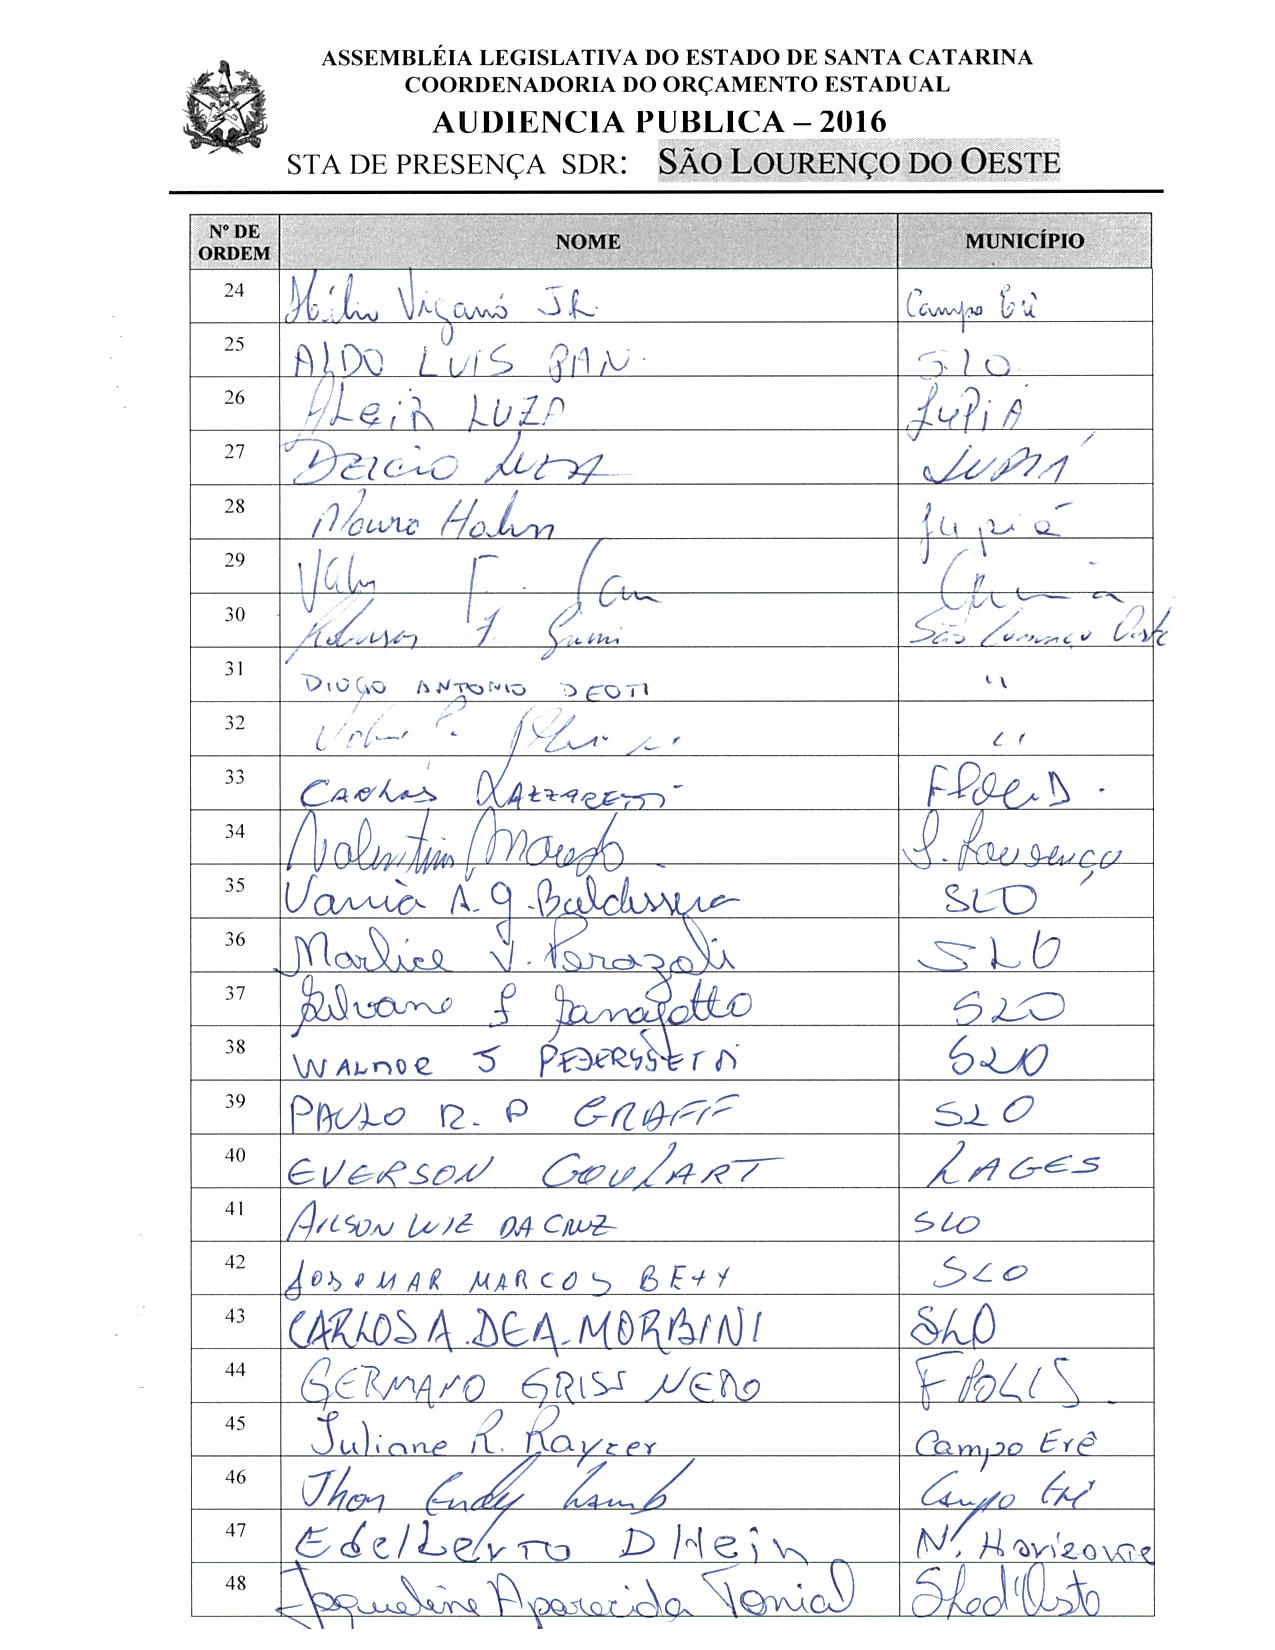 ASSEMBLÉIA LEGISLATIVA DO ESTADO DE SANTA CATARINA
COORDENADORIA DO ORÇAMENTO ESTADUAL
AUDIENCIA PUBLICA – 2016
STA DE PRESENÇA SDR: SÃO LOURENÇO DO OESTE
Nº DE ORDEM NOME MUNICÍPIO
24 Hélio Viganó JR. Campo Erê
25 ALDO LUIS PAN. S.L.O.
26 ALCIR LUZA JUPIÁ
27 DELCIO LUZA JUPIÁ
28 Mauro Hahn Jupiá
29
30 Robinson F. São Lourenço Oeste
31 DIOGO ANTONIO DEOTI "
32 "
33 CARLOS LAZZARETTI
34 Valentim S. Lourenço
35 Vania A. G. Baldissera SLO
36 Marlice V. Perazoli SLO
37 Silvane Zanagotto SLO
38 WALMOR J PEDERSSETTI SLO
39 PAULO R. P GRAFF SLO
40 EVERSON GOULART LAGES
41 AILSON LUIZ DA CRUZ SLO
42 JOSOMAR MARCOS BETT SLO
43 CARLOS A. DE A. MORBINI SLO
44 GERMANO GRISS NETO FPOLIS.
45 Juliane R. Rayzer Campo Erê
46 Jhon Endy Campo Erê
47 Edelberto D Hein N. Horizonte
48 Jaqueline Aparecida Tonial